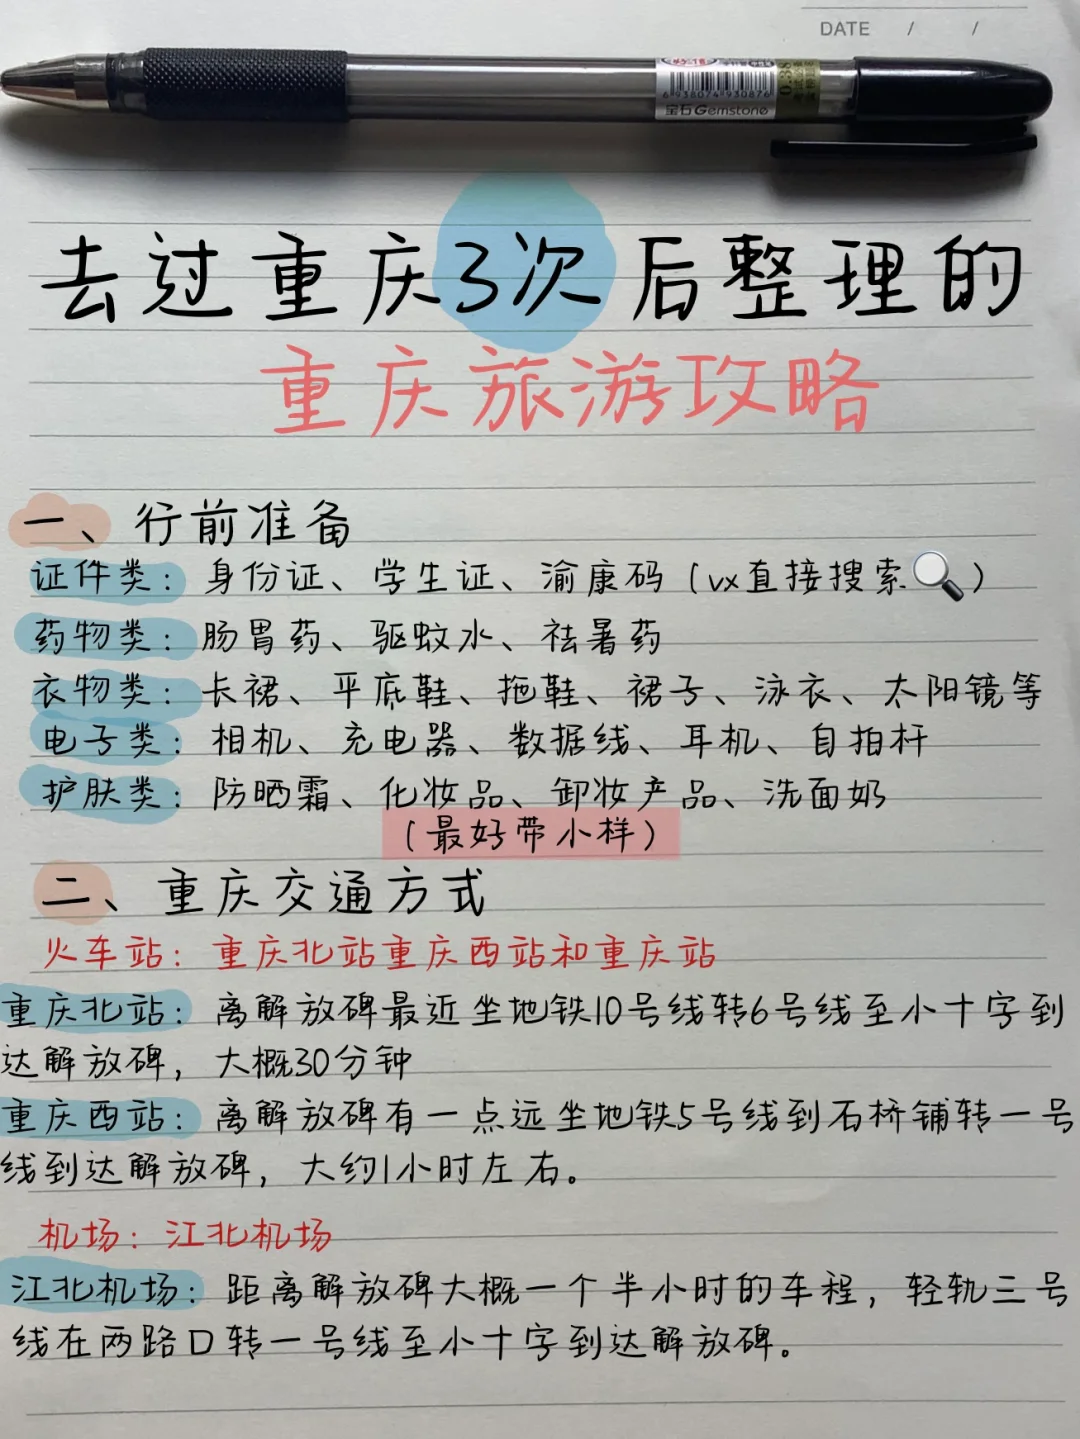 DATE / /
6 935074 930876
0.38
宝石Gemstone
去过重庆3次后整理的
重庆旅游攻略
一、行前准备
证件类：身份证、学生证、渝康码（vx直接搜索🔍）
药物类：肠胃药、驱蚊水、祛暑药
衣物类：长裙、平底鞋、拖鞋、裙子、泳衣、太阳镜等
电子类：相机、充电器、数据线、耳机、自拍杆
护肤类：防晒霜、化妆品、卸妆产品、洗面奶
（最好带小样）
二、重庆交通方式
火车站：重庆北站重庆西站和重庆站
重庆北站：离解放碑最近坐地铁10号线转6号线至小十字到
达解放碑，大概30分钟
重庆西站：离解放碑有一点远坐地铁5号线到石桥铺转一号
线到达解放碑，大约1小时左右。
机场：江北机场
江北机场：距离解放碑大概一个半小时的车程，轻轨三号
线在两路口转一号线至小十字到达解放碑。